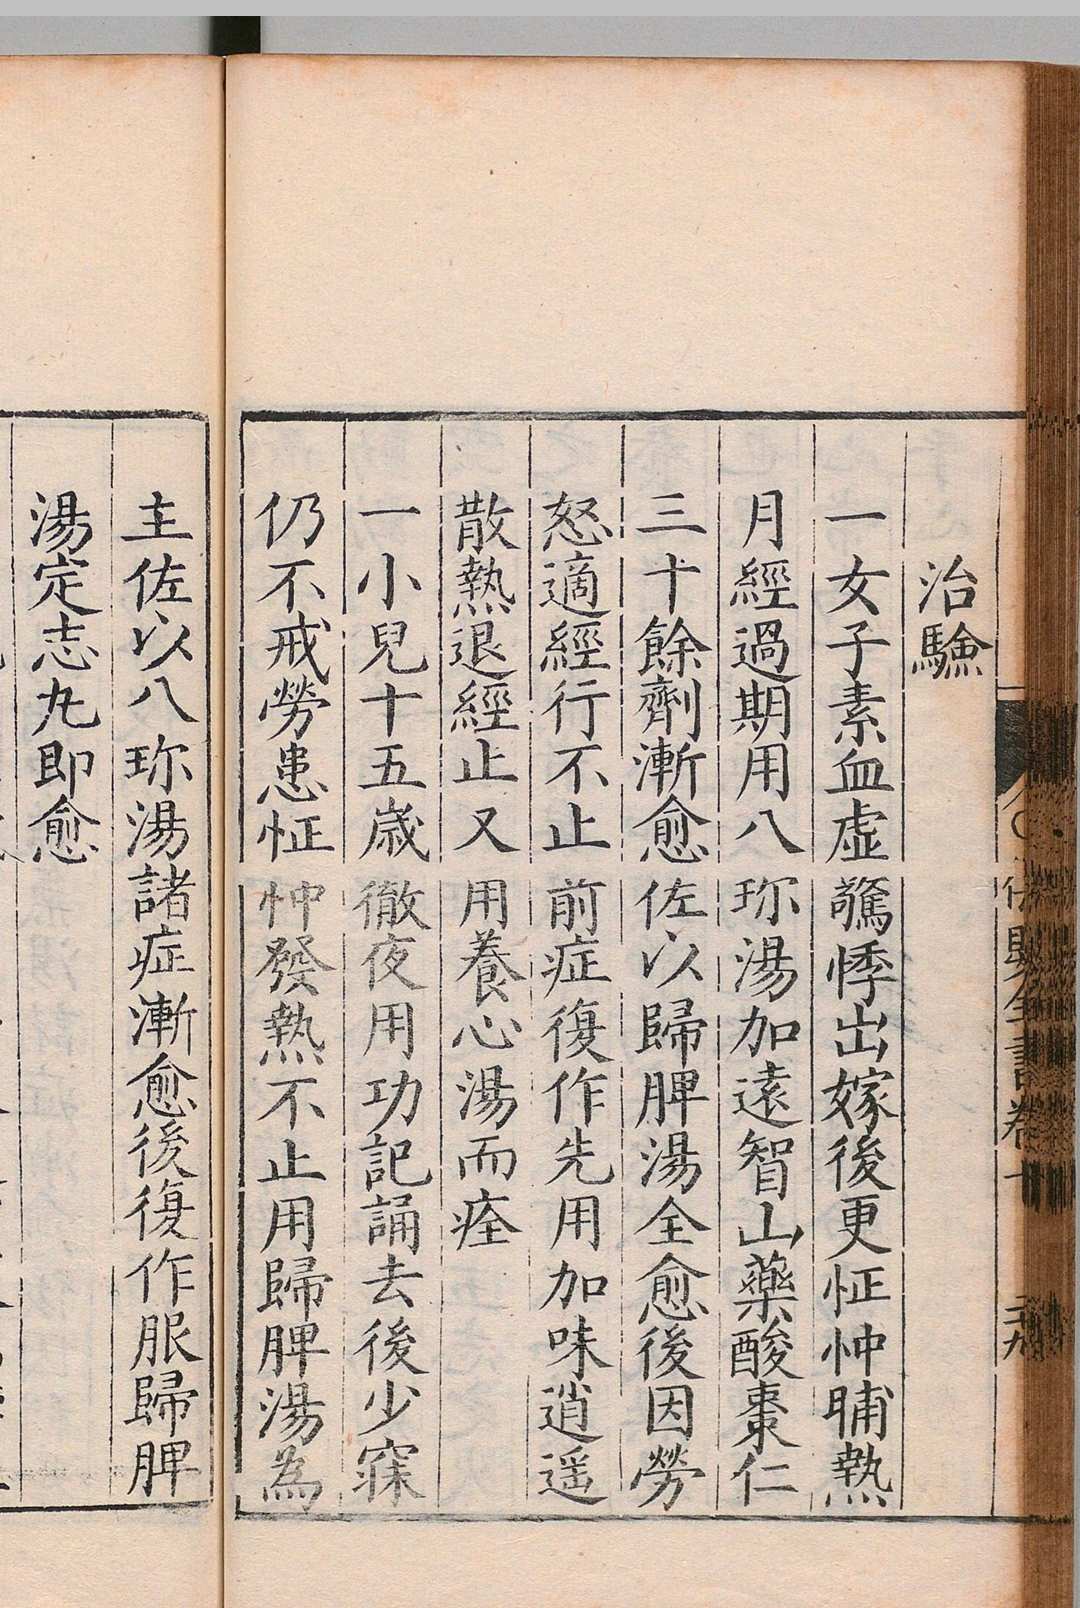 治驗
一女子素血虛驚悸出嫁後更怔忡晡熱
月經過期用八珎湯加遠智山藥酸棗仁
三十餘劑漸愈佐以歸脾湯全愈後因勞
怒適經行不止前症復作先用加味逍遥
散熱退經止又用養心湯而痊
一小兒十五歲徹夜用功記誦去後少寐
仍不戒勞患怔忡發熱不止用歸脾湯為
主佐以八珎湯諸症漸愈後復作服歸脾
湯定志丸即愈